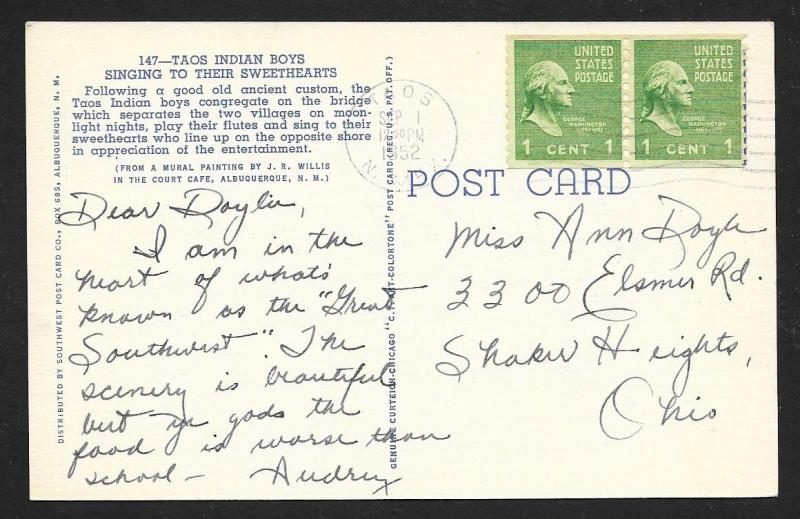 147—TAOS INDIAN BOYS
SINGING TO THEIR SWEETHEARTS
Following a good old ancient custom, the
Taos Indian boys congregate on the bridge
which separates the two villages on moon-
light nights, play their flutes and sing to their
sweethearts who line up on the opposite shore
in appreciation of the entertainment.
(FROM A MURAL PAINTING BY J. R. WILLIS
IN THE COURT CAFE, ALBUQUERQUE, N. M.)
DISTRIBUTED BY SOUTHWEST POST CARD CO., BOX 685, ALBUQUERQUE, N. M.
Dear Doylie,
I am in the
heart of what's
known as the "Great
Southwest". The
scenery is beautiful
but ye gods the
food is worse than
school— Audrey
GENUINE CURTEICH-CHICAGO "C.T. ART-COLORTONE" POST CARD (REG. U.S. PAT. OFF.)
TAOS
SEP 1
PM
1952
N. MEX.
UNITED
STATES
POSTAGE
GEORGE
WASHINGTON
1 CENT 1
UNITED
STATES
POSTAGE
GEORGE
WASHINGTON
1 CENT 1
POST CARD
Miss Ann Doyle
3300 Elsmer Rd.
Shaker Heights,
Ohio